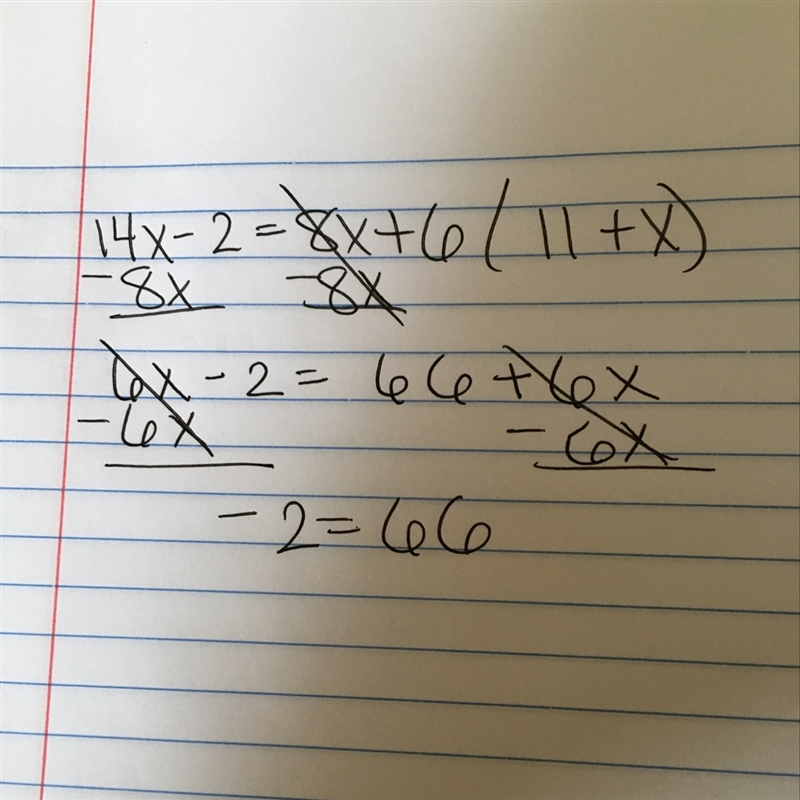 14x - 2 = 8x + 6 ( 11 + x )
- 8x - 8x
6x - 2 = 66 + 6x
- 6x - 6x
- 2 = 66